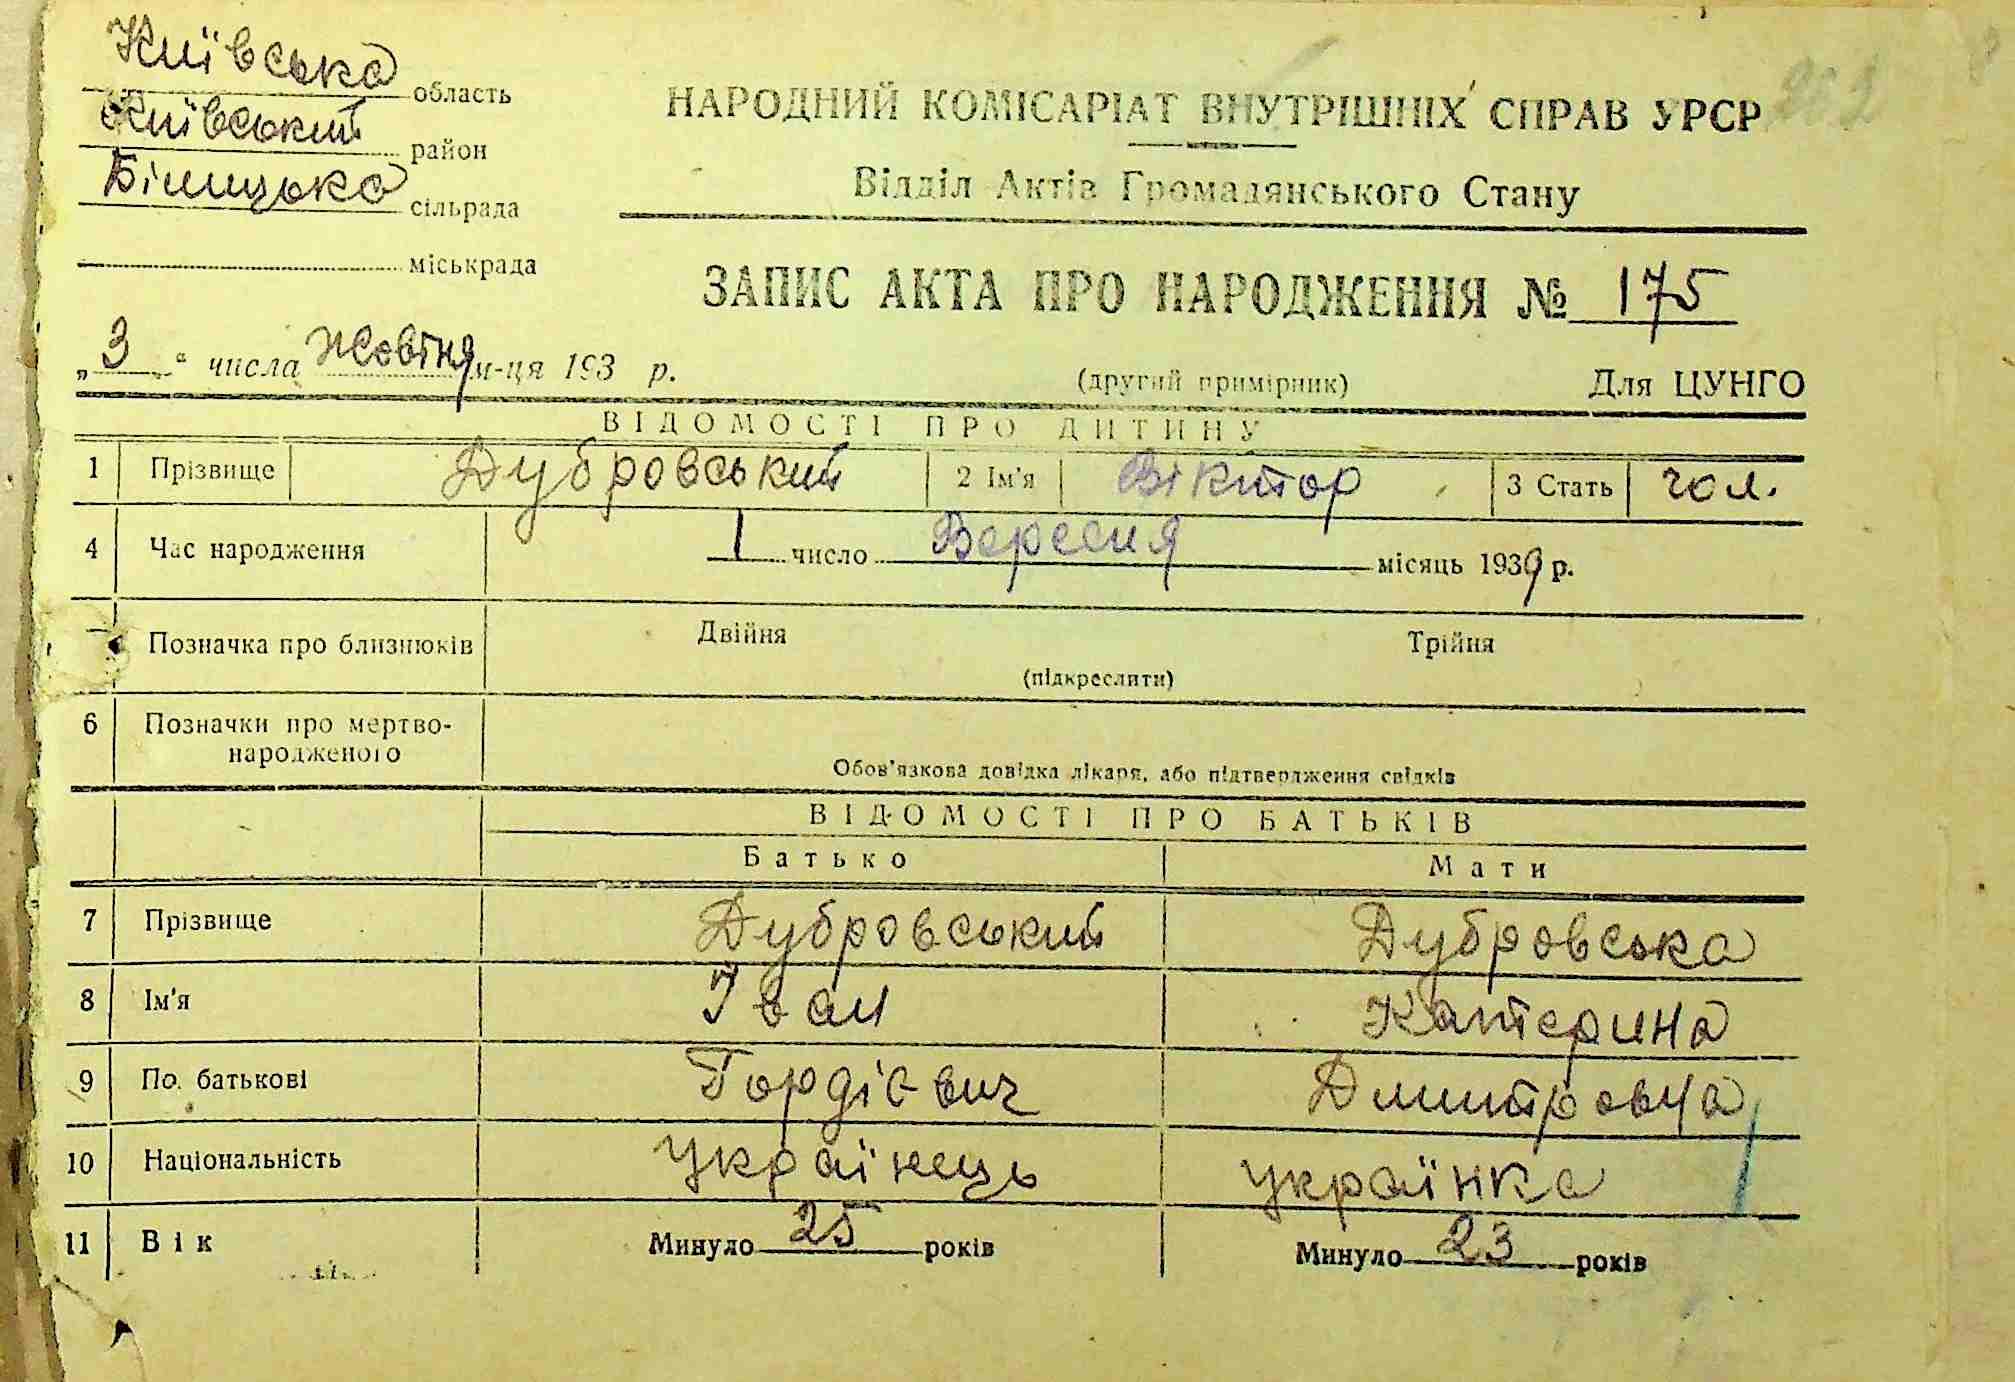 Київська область
Київський район
Білицька сільрада
міськрада
НАРОДНИЙ КОМІСАРІАТ ВНУТРІШНІХ СПРАВ УРСР
262
Відділ Актів Громадянського Стану
ЗАПИС АКТА ПРО НАРОДЖЕННЯ № 175
„3“ числа Жовтня м-ця 193 р.
(другий примірник) Для ЦУНГО
ВІДОМОСТІ ПРО ДИТИНУ
1 Прізвище Дубровський 2 Ім'я Віктор 3 Стать чол.
4 Час народження 1 число Вересня місяць 1939 р.
Позначка про близнюків Двійня Трійня
(підкреслити)
6 Позначки про мертво-
народженого
Обов'язкова довідка лікаря, або підтвердження свідків
ВІДОМОСТІ ПРО БАТЬКІВ
Батько Мати
7 Прізвище Дубровський Дубровська
8 Ім'я Іван Катерина
9 По батькові Гордієвич Дмитровна
10 Національність українець українка
11 Вік Минуло 25 років Минуло 23 років